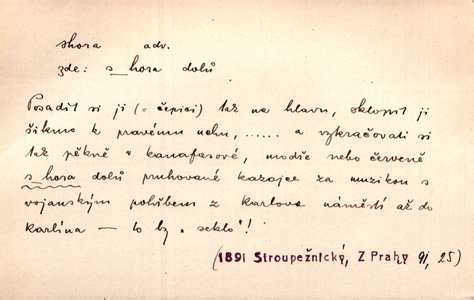 shora adv.
zde: s hora dolů
Posadit si ji (= čepici) tak na hlavu, sklopit ji
šikmo k pravému uchu, ...... a vykračovati si
tak pěkně v kanafasové, modře nebo červeně
s hora dolů pruhované kazajce za muzikou s
vojanským pohřbem z Karlova náměstí až do
Karlína — to by "seklo"!
(1891 Stroupežnický, Z Prahy 91, 25)